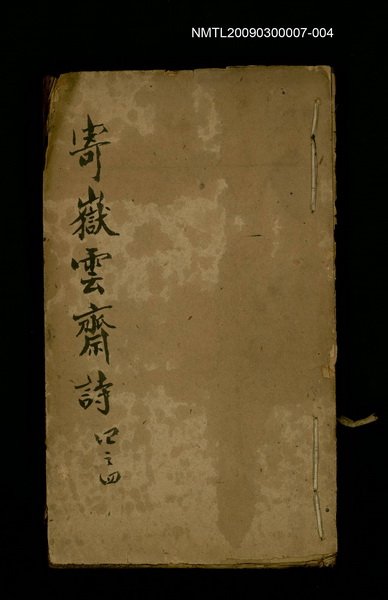 NMTL20090300007-004
寄嶽雲齋詩 四之四